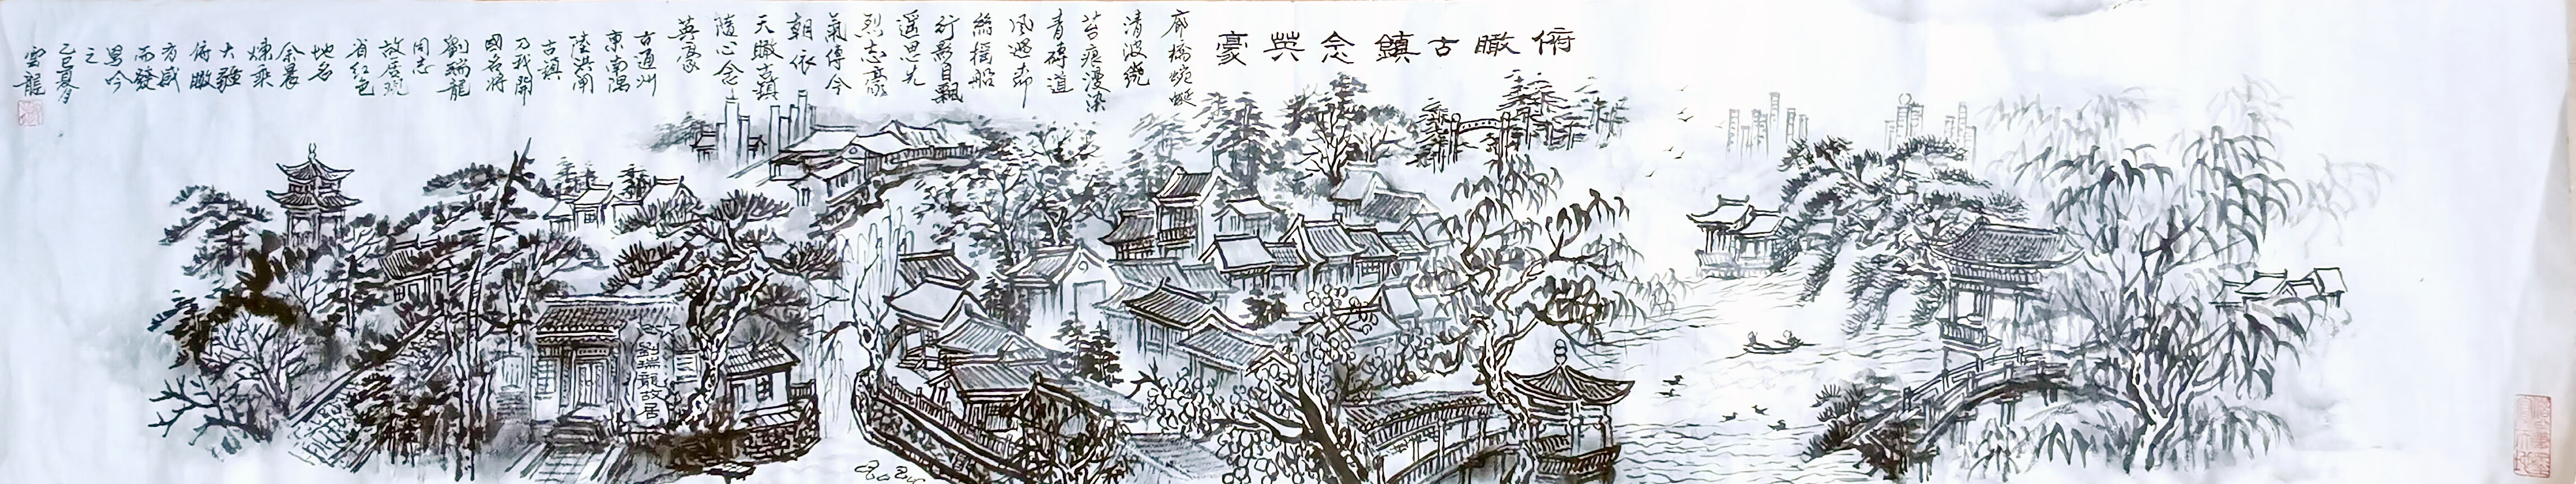 俯瞰古鎮念英豪
廊橋蜿蜒
清波繞
苔痕漫染
青磚道
風過帘
絲搖船
行影自飄
遥思先
烈志豪
氣傳今
朝依
天瞰古鎮
隨心念
英豪
古通州
東南隅
陸洪閘
古鎮
乃我開
國名將
劉瑞龍
同志
故居現
省紅色
地名
余晨
煉乘
大疆
俯瞰
有感
而發
思吟
之
乙巳夏月
雲龍
劉瑞龍故居